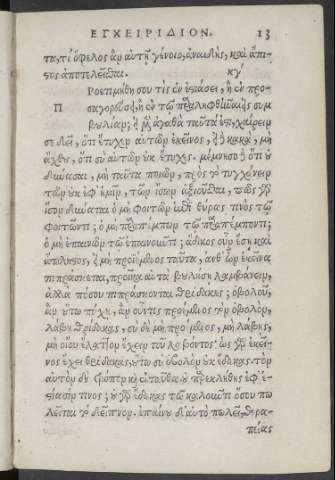 ΕΓΧΕΙΡΙΔΙΟΝ. 13
τα, τί ὄφελος ἂν αὐτῇ γένοιο, ἀναιδὴς, καὶ ἄπι-
στος ἀποτελεῖσθαι. κγ
Ροετιμήθη σου τὶς ἐν ἑστιάσει, ἢ ἐν προ-
Π σαγορεύσει, ἢ ἐν τῷ παραληφθῆναι εἰς συμ
βουλίαν; ἢ μὲν ἀγαθὰ ταῦτά ἐστι, χαίρειν
σε δεῖ, ὅτι ἔτυχεν αὐτῶν ἐκεῖνος, ἢ δὲ κακὰ, μὴ
ἄχθου, ὅτι σὺ αὐτῶν οὐκ ἔτυχες. μέμνησο δὲ ὅτι οὐ
δύνασαι, μὴ ταῦτα ποιῶν, πρὸς τὸ τυγχάνειν
τῶν οὐκ ἐφ' ἡμῖν, τῶν ἴσων ἀξιοῦσθαι, πῶς γὰρ
ἴσον δύναται ὁ μὴ φοιτῶν ἐπὶ θύρας τινὸς τῷ
φοιτῶντι; ὁ μὴ παραπέμπων τῷ παραπέμποντι;
ὁ μὴ ἐπαινῶν τῷ ἐπαινοῦντι; ἄδικος οὖν ἔσῃ καὶ
ἄπληστος, εἰ μὴ προϊέμενος ταῦτα, ἀνθ' ὧν ἐκεῖνα
πιπράσκεται, προῖκα αὐτὰ βουλήσῃ λαμβάνειν,
ἀλλὰ πόσου πιπράσκονται θρίδακες; ὀβολοῦ,
ἂν οὕτω τύχῃ, ἂν οὖν τις προϊέμενος τὸν ὀβολὸν,
λάβῃ θρίδακας, σὺ δὲ μὴ προϊέμενος, μὴ λάβῃς,
μὴ οἴου ἔλαττον ἔχειν τοῦ λαβόντος. ὡς γὰρ ἐκεῖ-
νος ἔχει θρίδακας, οὕτω σὺ ὀβολὸν οὐκ ἔδωκας. τὸν
αὐτὸν δὴ τρόπον καὶ ἐνταῦθα. οὐ παρεκλήθης ἐφ' ἑ-
στίασίν τινος; οὐ γὰρ ἔδωκας τῷ καλοῦντι ὅσου πω
λεῖται τὸ δεῖπνον. ἐπαίνου δ' αὐτὸ πωλεῖ, θερα-
πείας